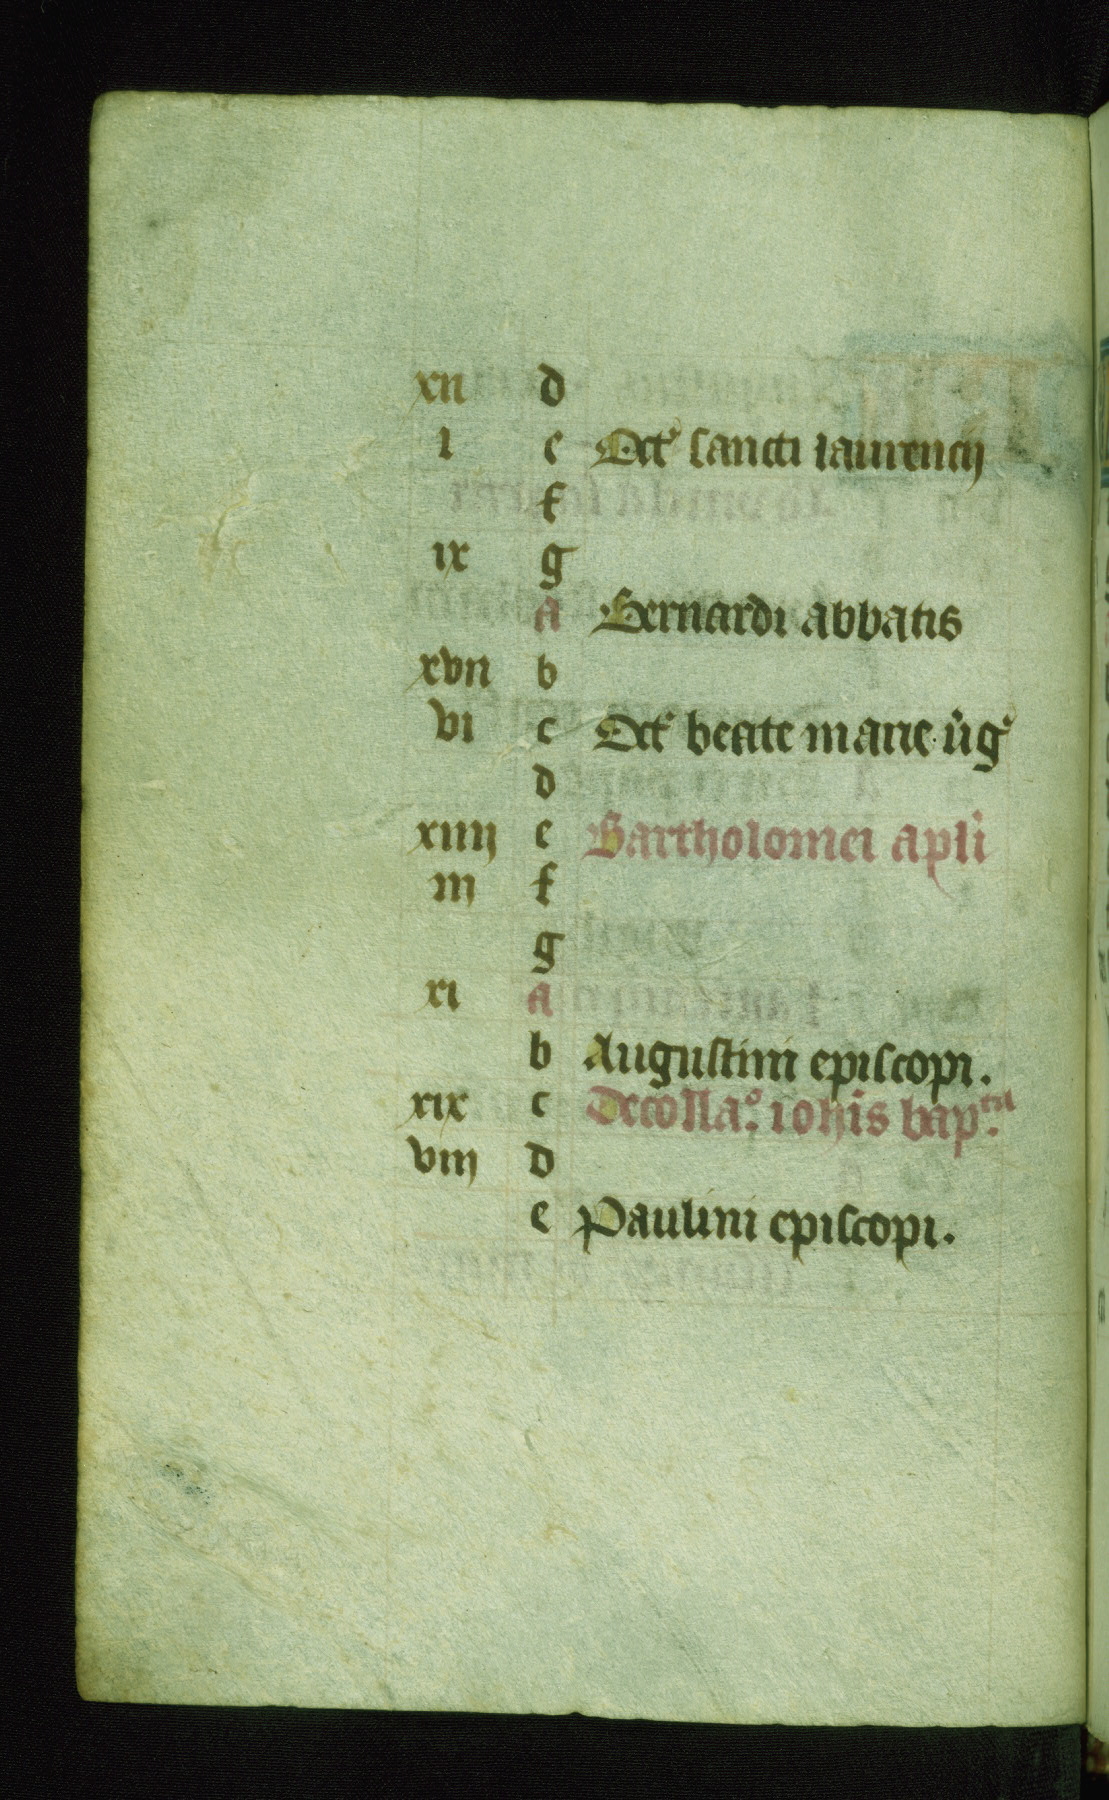 xii d
i e Oct' sancti laurencij
f
ix g
a Bernardi abbatis
xvii b
vi c Oct' beate marie v̄ig'
d
xiiij e Bartholomei apl̄i
iij f
g
xi a
b Augustini episcopi.
xix c Decolla°. ioh̄is bap.
viij d
e Paulini episcopi.